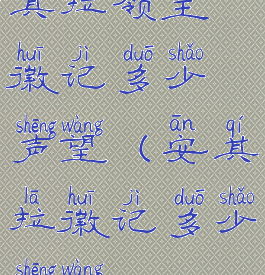 其拉领主
huī jì duō shǎo
徽记多少
shēng wàng ān qí
声望（安其
lā huī jì duō shǎo
拉徽记多少
shēng wàng